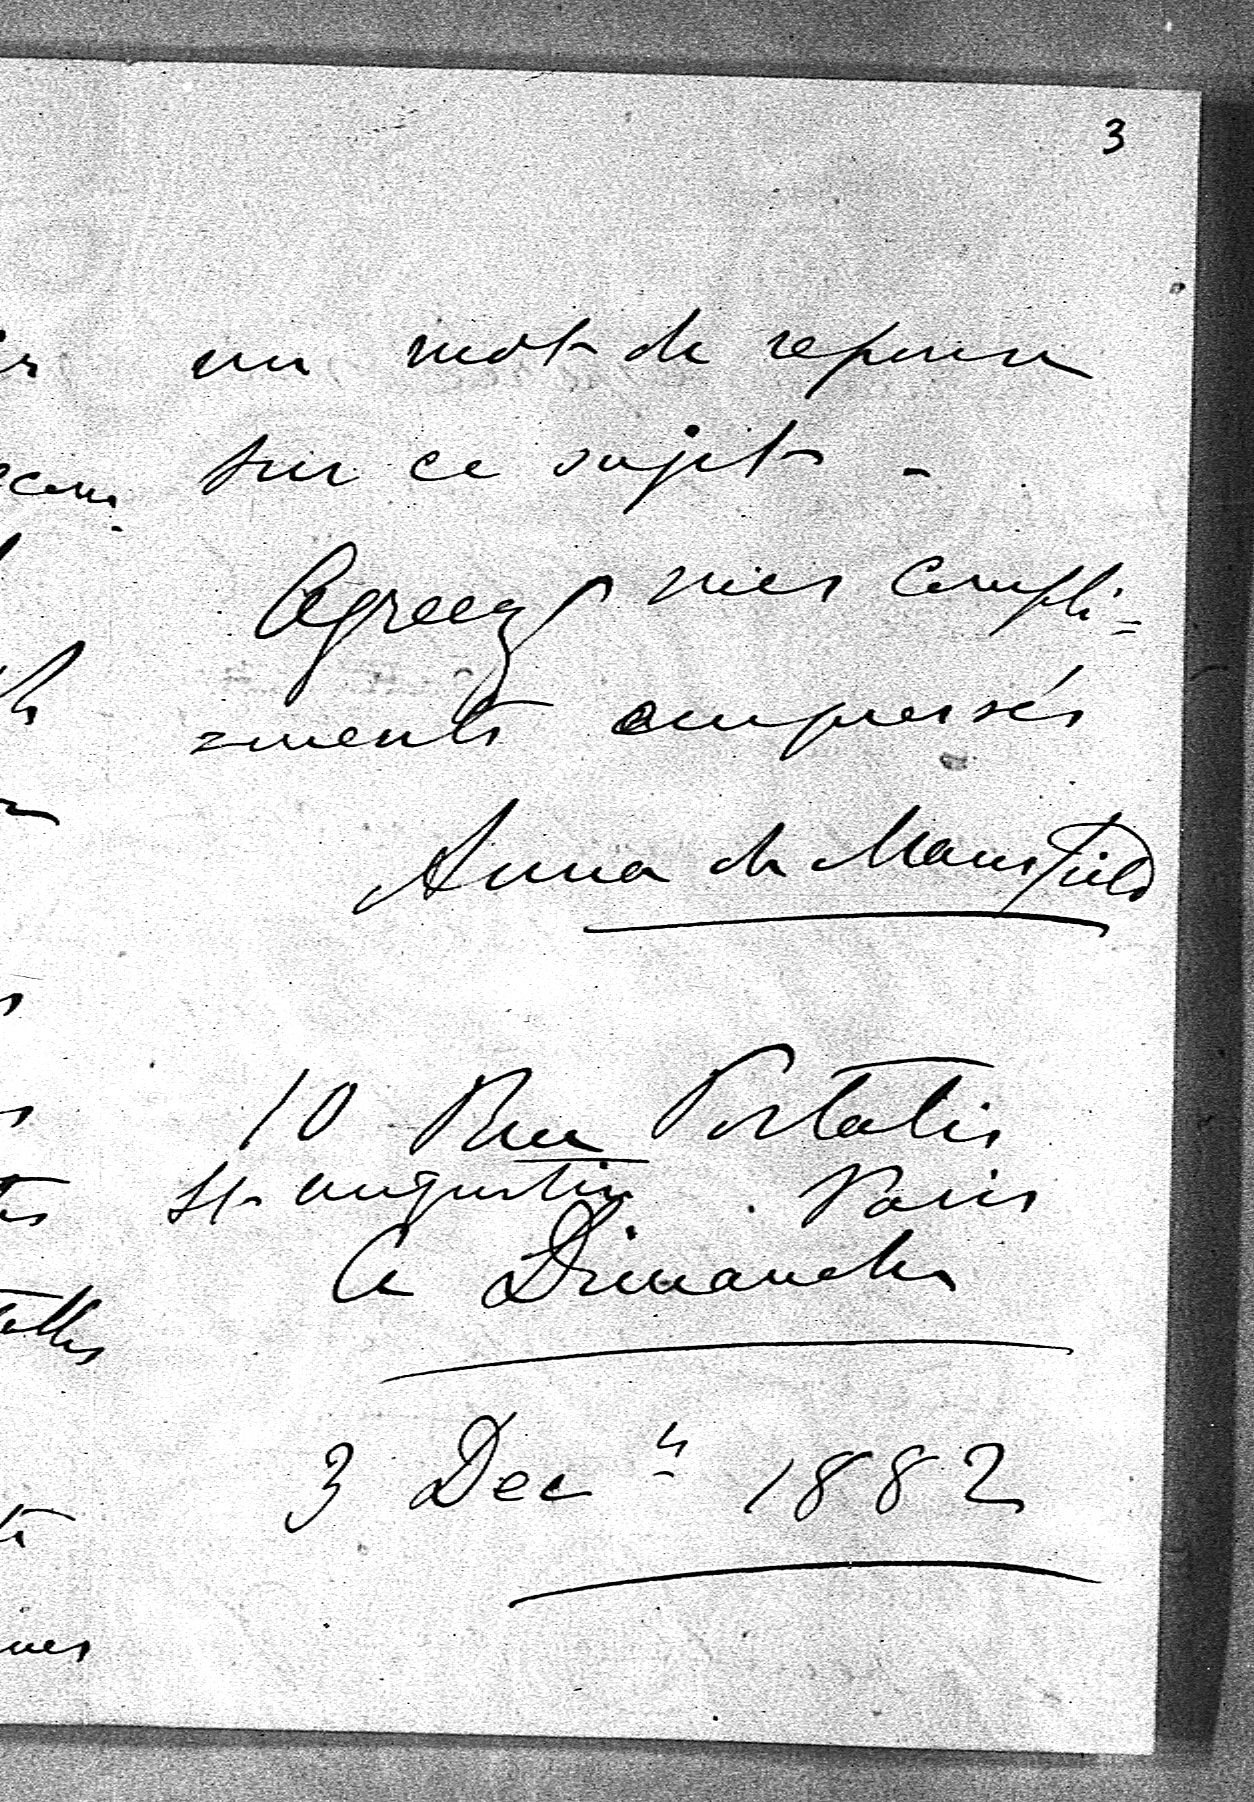 3
un mot de reponse
sur ce sujet -
Agreez mes compli=
=ments empressés
Anna de Mansfield
10 Rue Portalis
St augustin . Paris
Ce Dimanche
3 Dec 1882